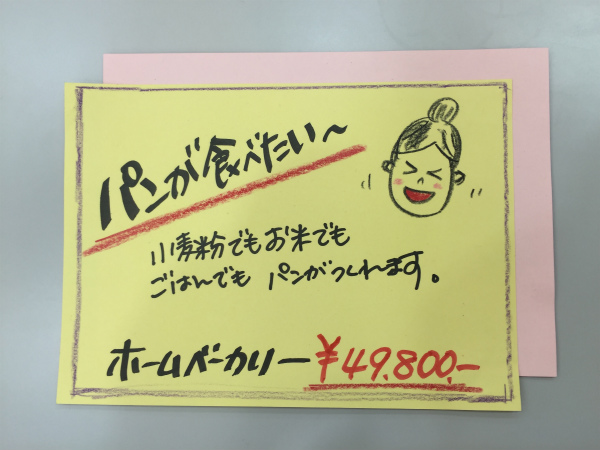 パンが食べたい〜
小麦粉でもお米でも
ごはんでも パンがつくれます。
ホームベーカリー ¥49,800.-